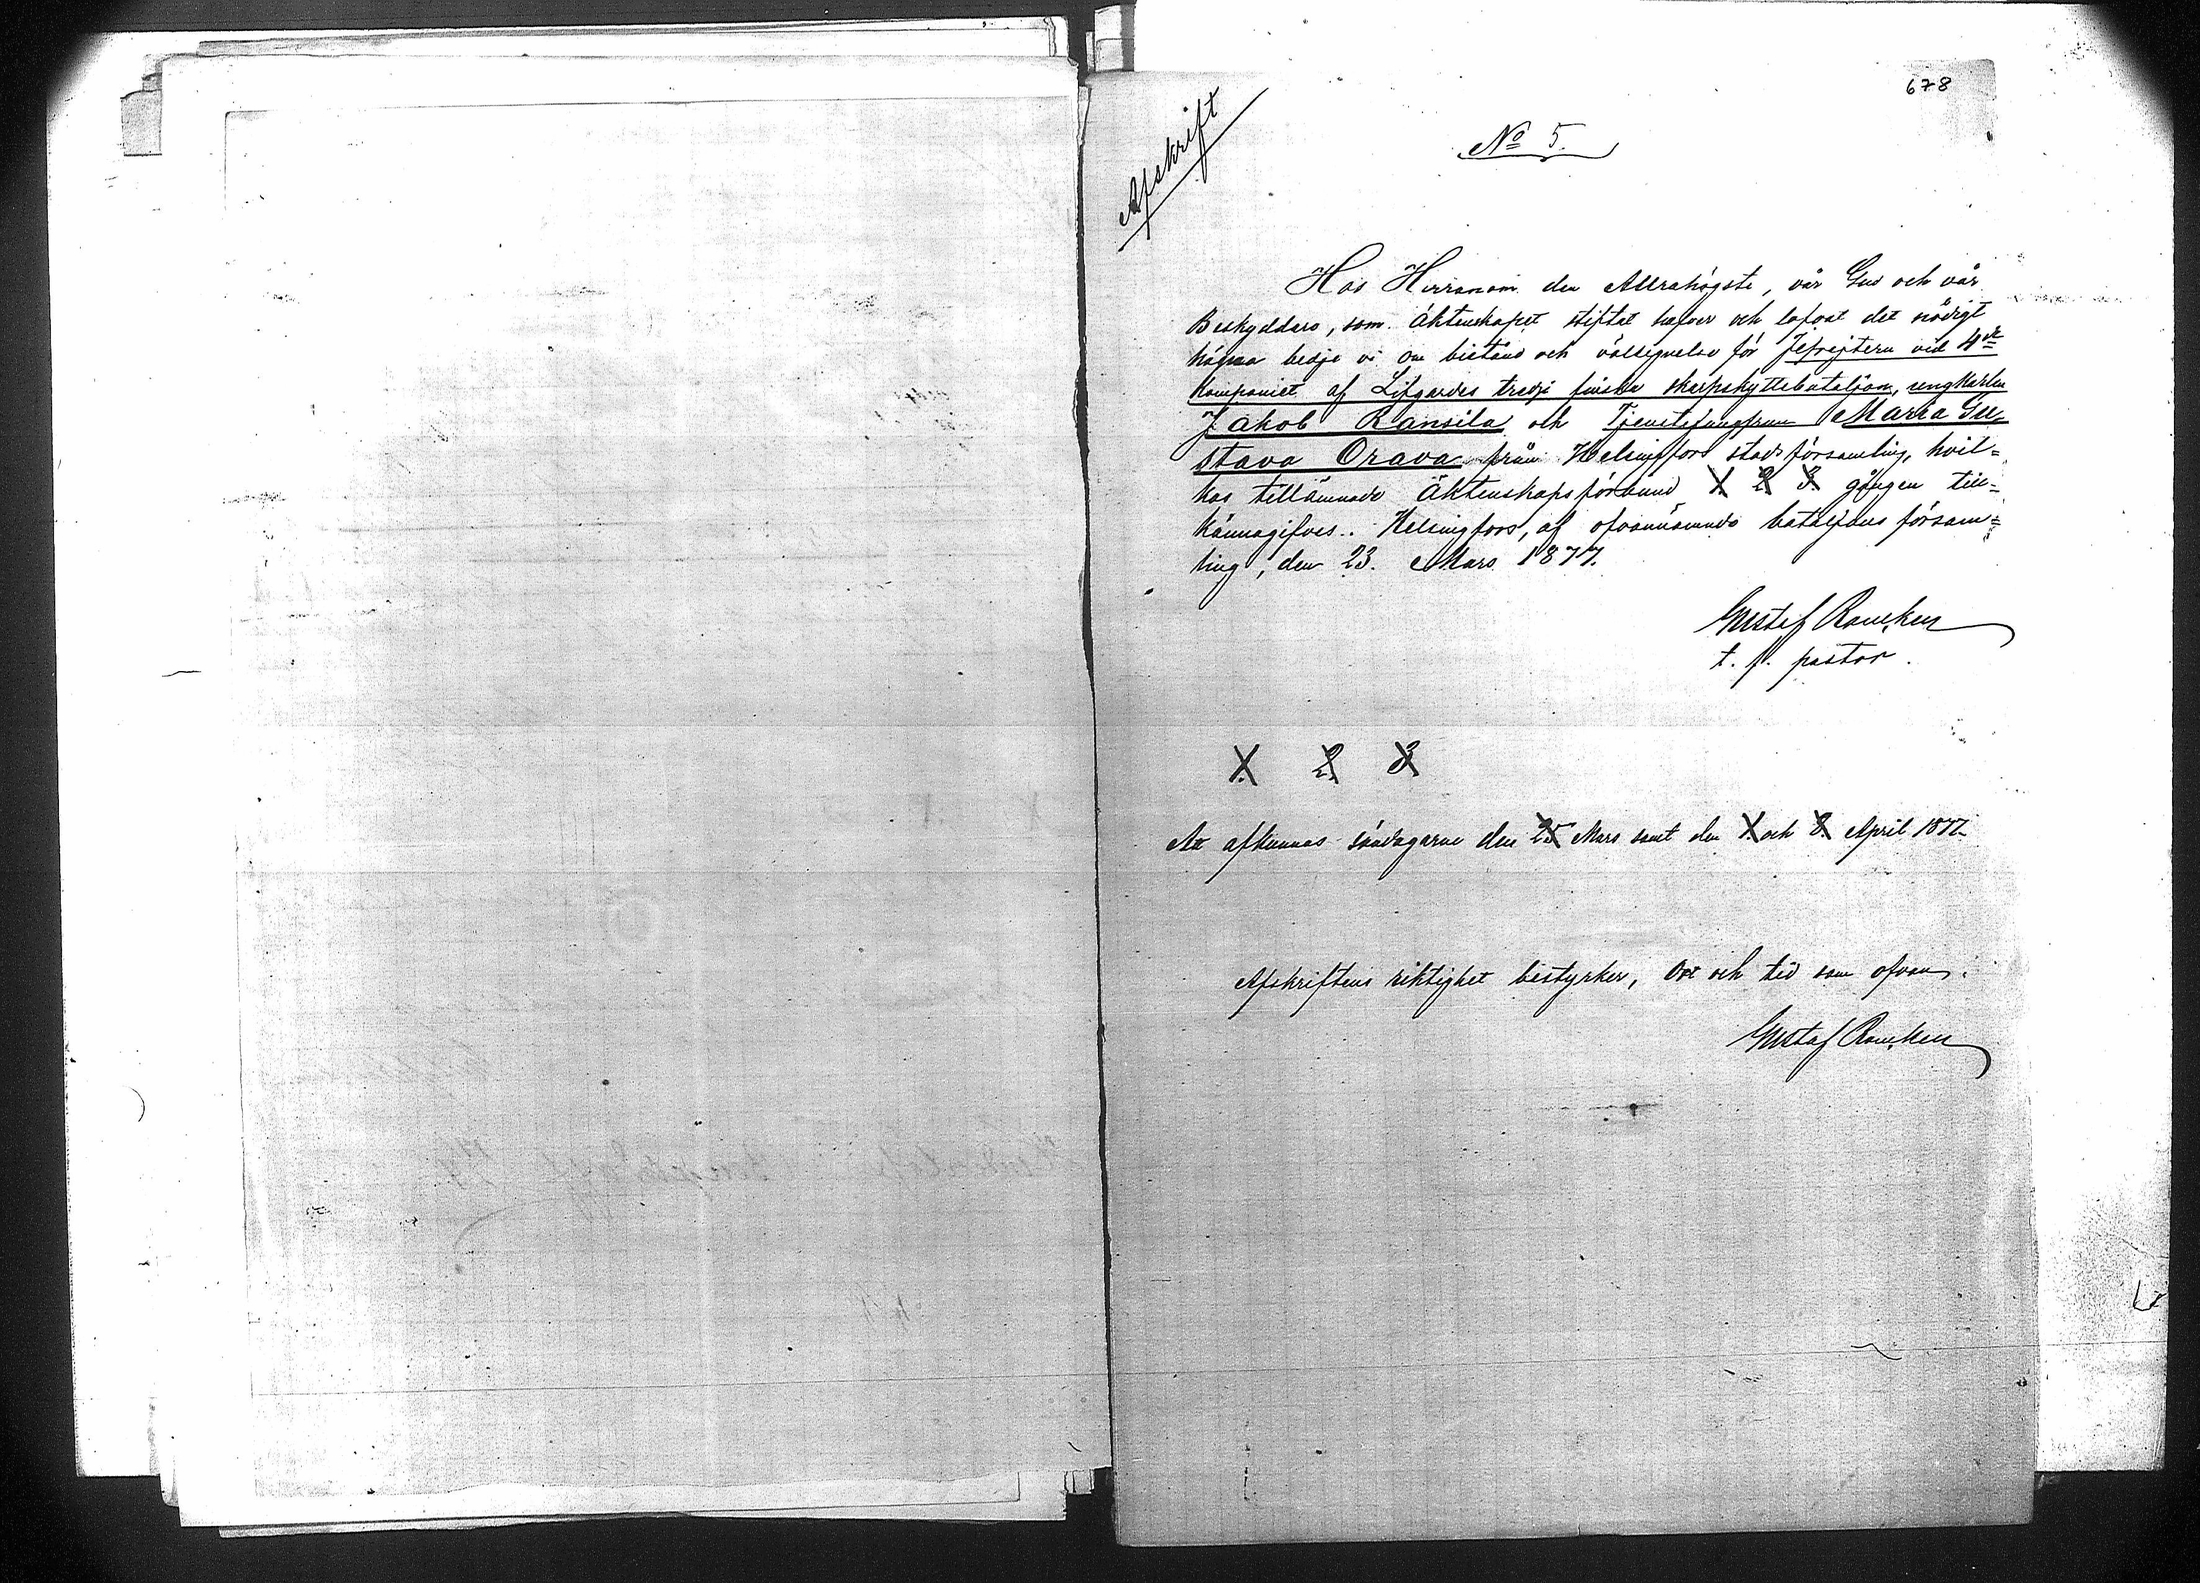 678
Afskrift
No 5.
Hos Herranom den Allrahögste, vår Gud och vår
Beskyddare, som Äktenskapet stiftat hafver och lofvat det nådigt
hägna bedje vi om bistånd och välsignelse för Jefrejtern vid 4de
Kompaniet af Lifgardes tredje finska skarpskyttebataljon, ungkarlen
Jakob Ransila och Tjenstejungfrun Maria Gu-
stava Orava från Helsingfors stadsförsamling, hvil=
kas tillämnade Äktenskapsförbund 1. 2. 3. gången till=
kännagifves. Helsingfors, af ofvannämnde bataljons församl=
ling, den 23. Mars 1877.
Gustaf Rancken
t. f. pastor.
1. 2. 3.
Att afkunnas söndagarne den 25 Mars samt den 1. och 8. April 1877.
Afskriftens riktighet bestyrker, Ort och tid som ofvan.
Gustaf Rancken